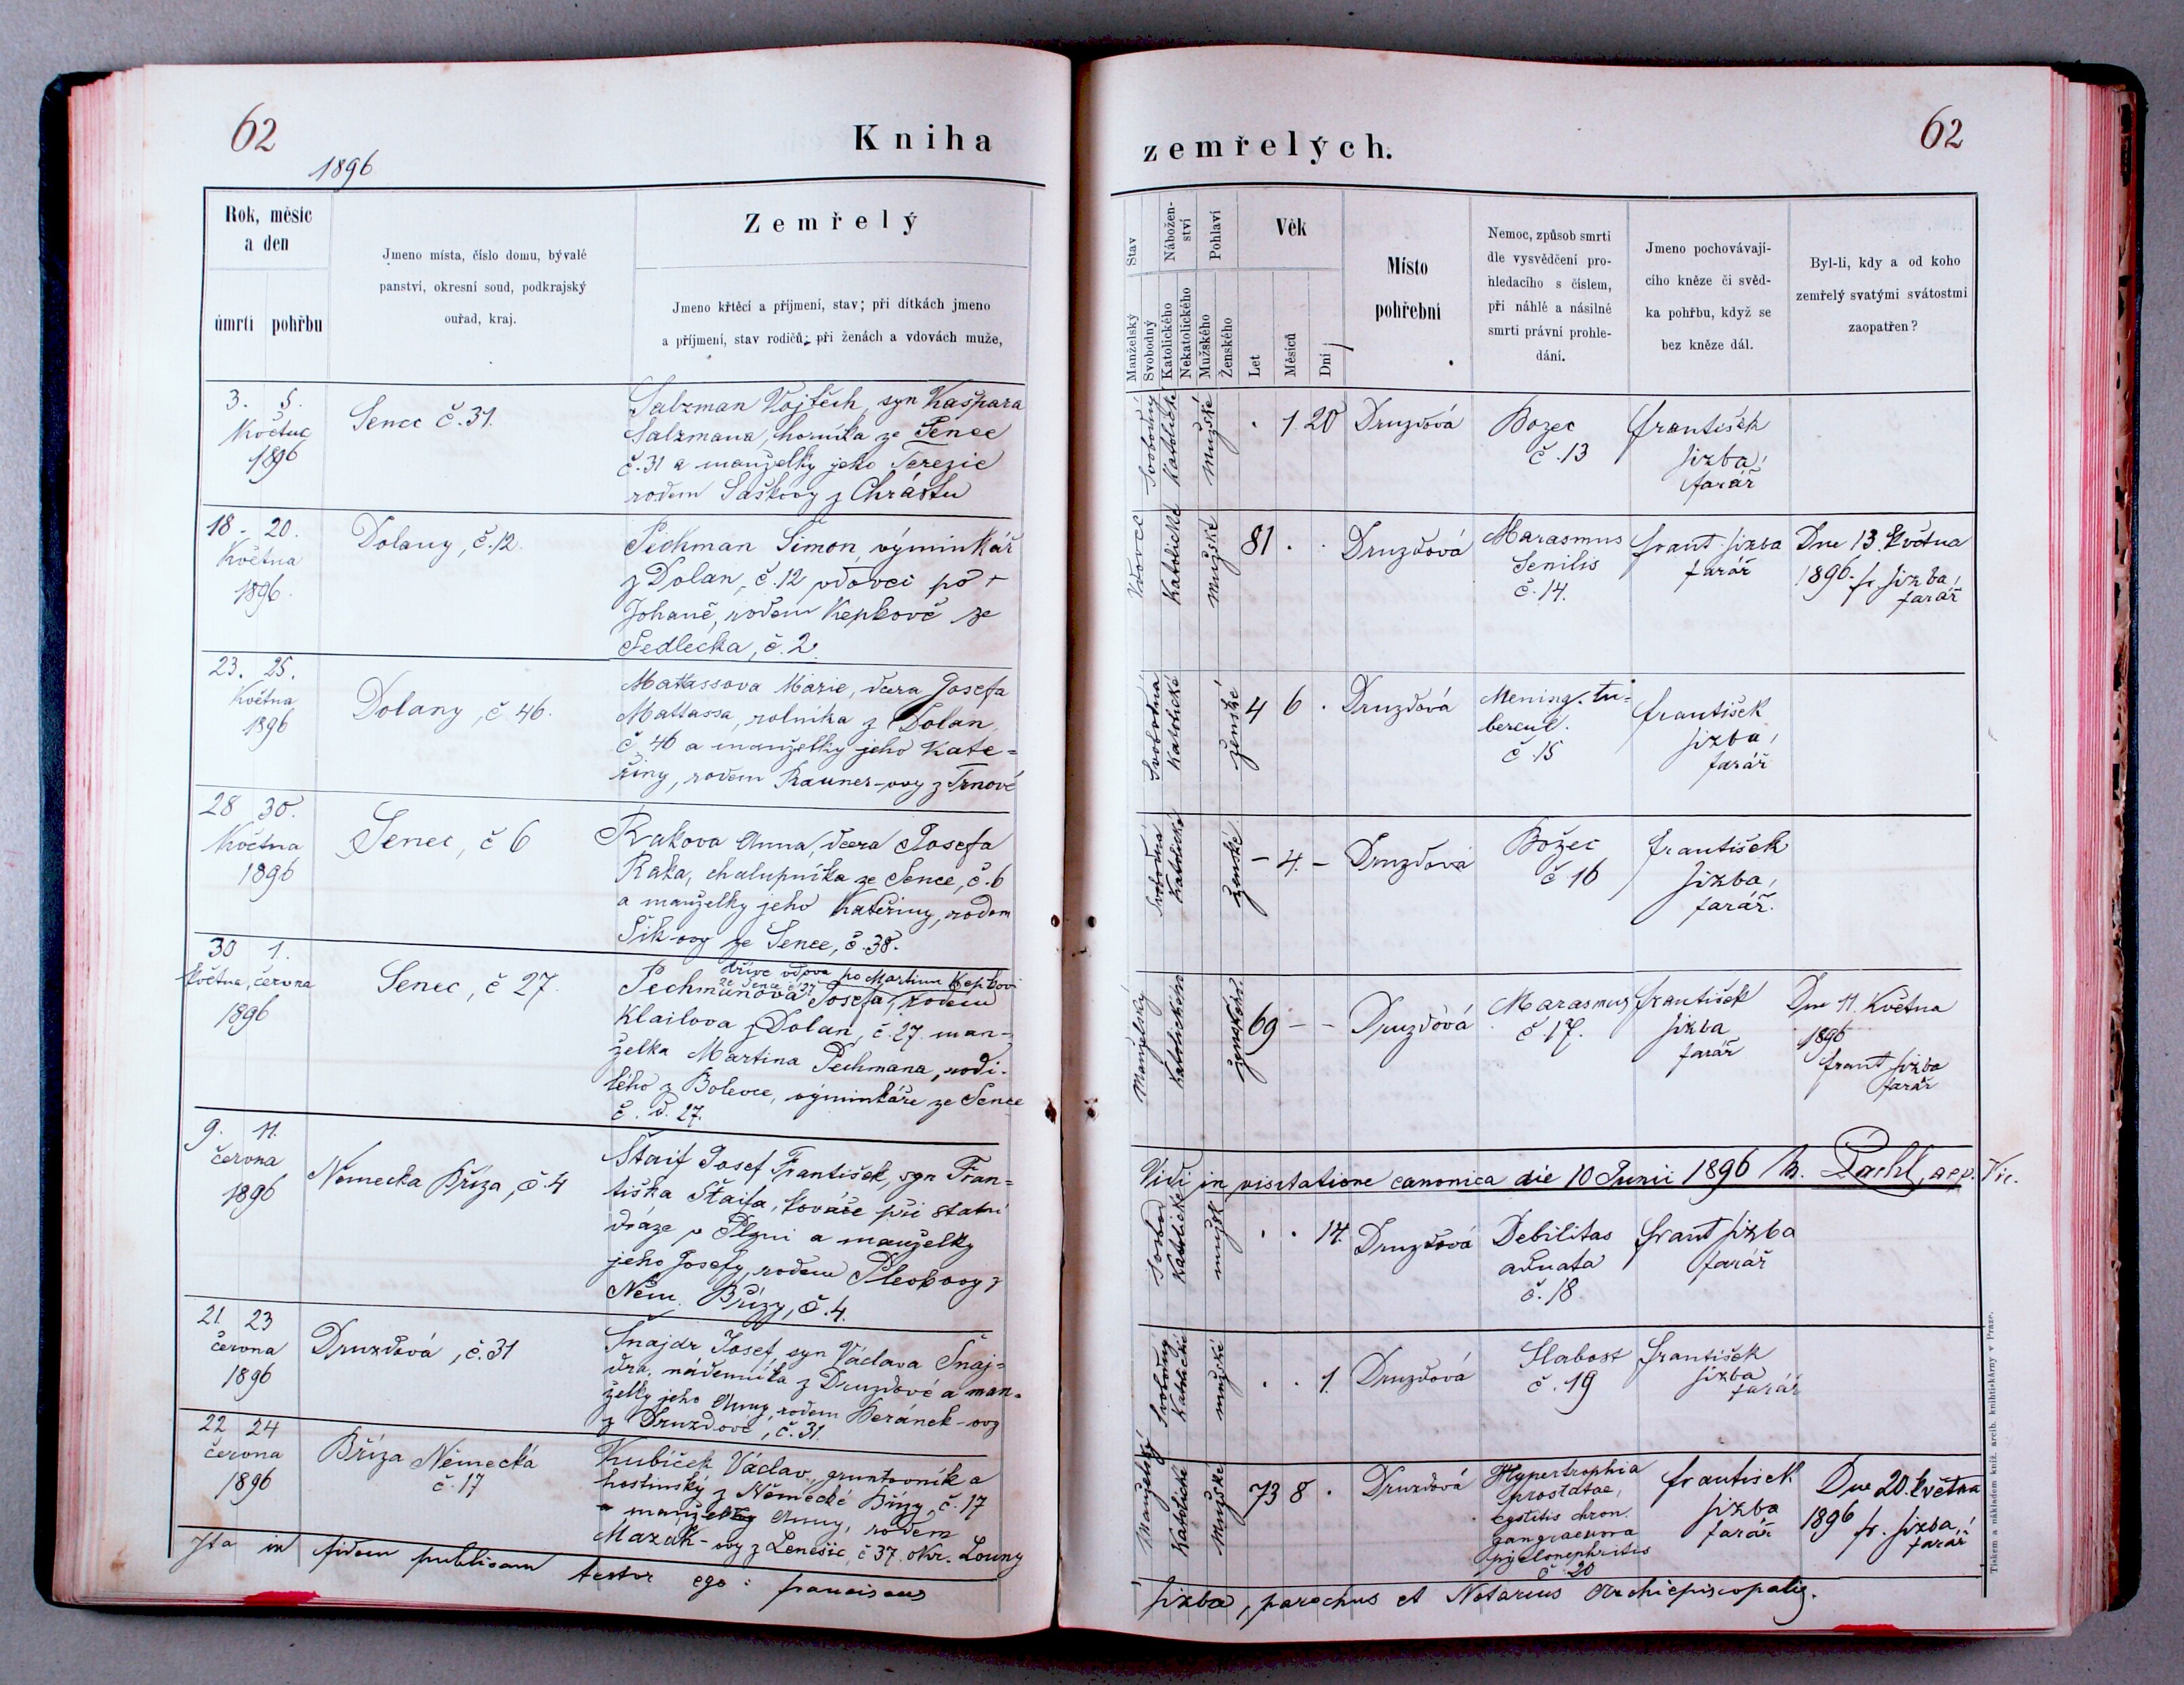 62
Kniha
1896
Rok, měsíc
a den
úmrtí pohřbu
Jmeno místa, číslo domu, bývalé
panství, okresní soud, podkrajský
ouřad, kraj.
Zemřelý
Jmeno křtěcí a příjmení, stav; při dítkách jmeno
a příjmení, stav rodičů; při ženách a vdovách muže,
3. 5.
Května
1896
Senec č. 31.
Salzman Vojtěch, syn Kašpara
Salzmana, horníka ze Sence
č. 31 a manželky jeho Terezie
rodem Saškovy z Chrástu
18. 20.
Května
1896.
Dolany, č. 12.
Pechman Šimon, výminkář
z Dolan, č. 12 vdovci po +
Johaně, rodem Kepkově ze
Sedlecka, č. 2.
23. 25.
Května
1896
Dolany, č 46.
Mattassova Marie, dcera Josefa
Mattassa, rolníka z Dolan,
č 46 a manželky jeho Kate=
řiny, rodem Rauner-ovy z Trnové
28 30.
Května
1896
Senec, č 6
Rakova Anna, dcera Josefa
Raka, chalupníka ze Sence, č. 6
a manželky jeho Kateřiny, rodem
Šik-ovy ze Sence, č. 38.
30 1.
Května, června
1896
Senec, č 27.
dříve vdova po Martinu Kepkovi
ze Sence č 27
Pechmanova Josefa, rodem
Klailova z Dolan, č. 27. man-
želka Martina Pechmana, rodi-
lého z Bolevce, výminkáře ze Sence
č. d. 27.
9. 11.
června
1896
Německa Bříza, č. 4
Štaif Josef František, syn Fran=
tiška Štaifa, kováře při statní
dráze v Plzni a manželky
jeho Josefy, rodem z
Něm. Břízy, č. 4.
21. 23
června
1896
Druzdová, č. 31
Šnajdr Josef, syn Václava Šnaj=
dra, nádenníka z Druzdové a man=
želky jeho Anny, rodem Beránek-ovy
z Druzdové, č. 31.
22 24
června
1896
Bříza Německá
č. 17
Kubíček Václav, gruntovník a
hostinský z Německé Břízy, č. 17
manžel Anny, rodem
Mazák-ovy z Lenešic, č 37. okr. Louny
Ita in fidem publicam testor ego: franciscus
62
zemřelých.
Stav
Manželský
Svobodný
Nábožen-
ství
Katolického
Nekatolického
Pohlaví
Mužského
Ženského
Věk
Let
Měsíců
Dní
Místo
pohřební
Nemoc, způsob smrti
dle vysvědčení pro-
hledacího s číslem,
při náhlé a násilné
smrti právní prohle-
dání.
Jmeno pochovávají-
cího kněze či svěd-
ka pohřbu, když se
bez kněze dál.
Byl-li, kdy a od koho
zemřelý svatými svátostmi
zaopatřen?
Svobodný Katolické Mužské . 1 20 Druzdová Bozec František
č. 13 Jizba,
farář
Vdovec Katolické Mužské 81 . . Druzdová Marasmus frant Jizba Dne 13. Května
Senilis farář 1896. fr. Jizba,
č. 14. farář
Svobodná Katolické ženské 4 6 . Druzdová Mening. tu=
bercul. František
č. 15 Jizba,
farář
Svobodná Katolické ženské – 4. – Druzdová Božec František
č. 16 Jizba,
farář.
Manželský Katolického ženského 69 – – Druzdová Marasmus František Dne 11. Května
č. 17. Jizba 1896
farář frant Jizba
farář
Vidi in visitatione canonica die 10 Junii 1896
Svobod Katolické mužsk . . 14. Druzdová Debilitas frant Jizba
adnata farář
č. 18
Svobodný Katolické mužské . . 1. Druzdová Slabost František
č. 19 Jizba
farář
Manželský Katolické Mužské 73 8 . Druzdová Hypertrophia František Dne 20. května
prostatae, Jizba 1896 fr. Jizba,
cystitis chron. farář farář
gangraenora
pyelonephritis
č 20
Jizba, parochus et Notarius Archiepiscopalis.
Tiskem a nákladem kníž. arcib. knihtiskárny v Praze.